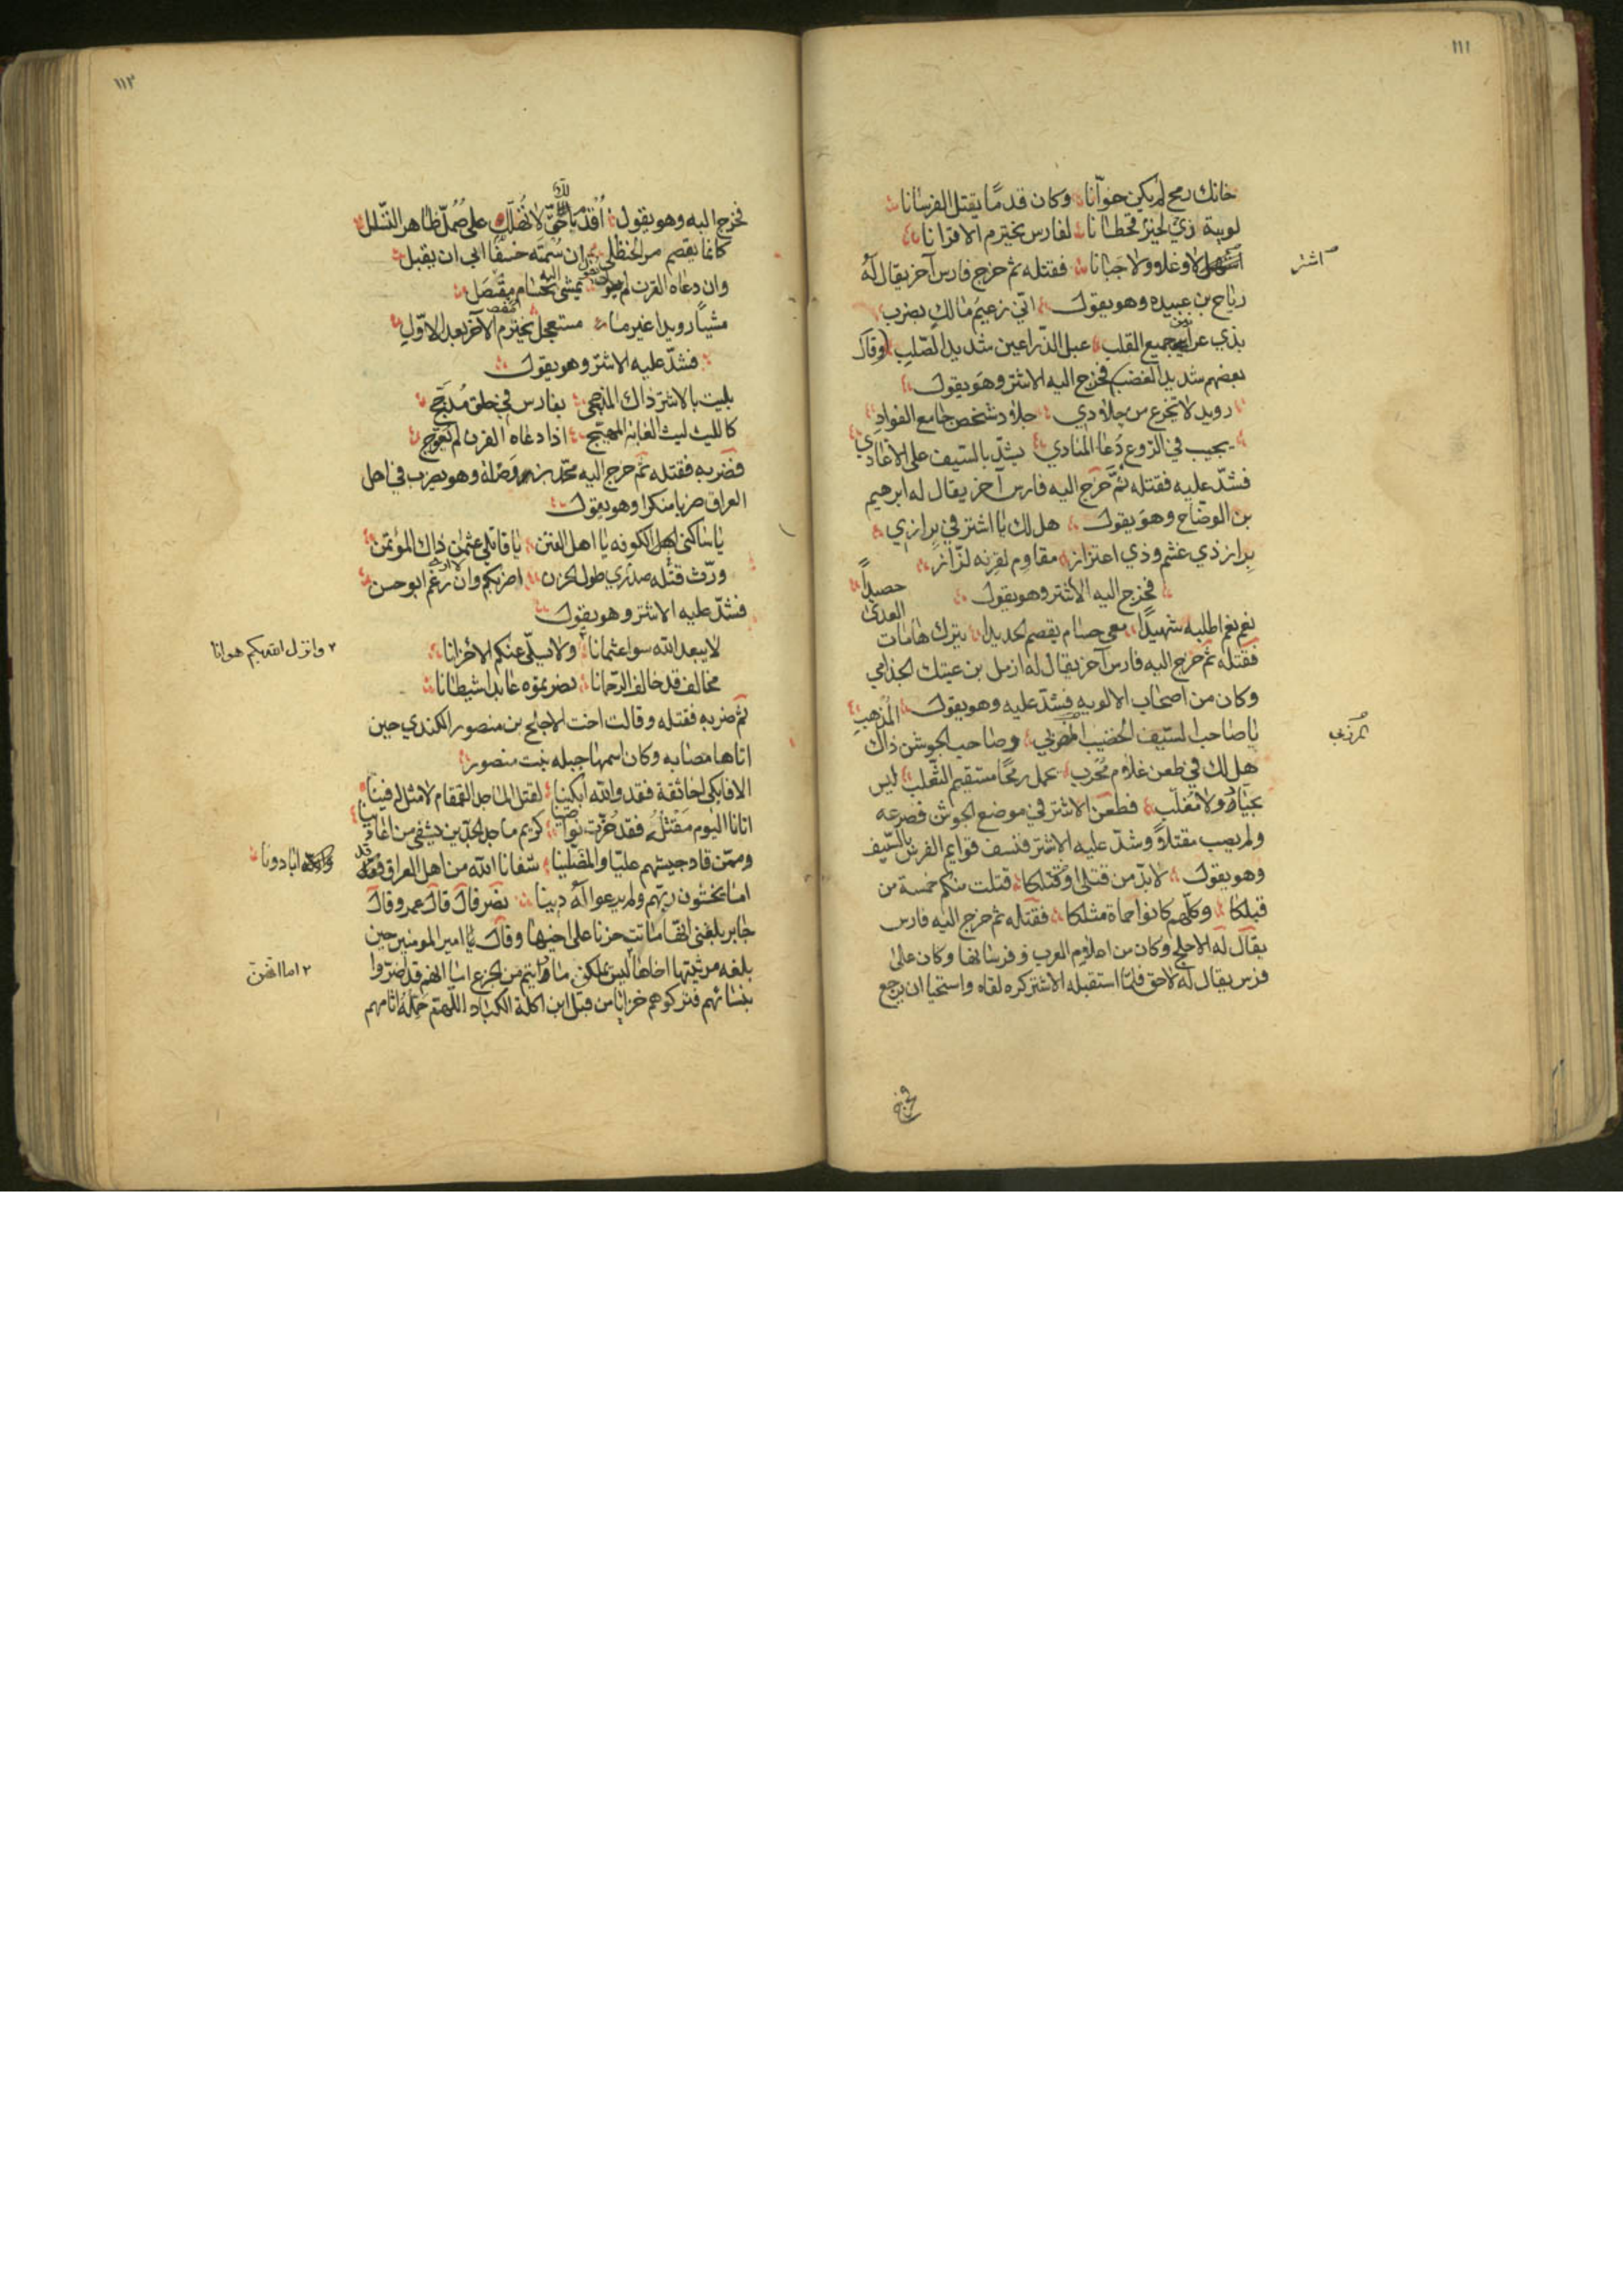 ١١١
خانك رمح لم يكن خوّانا وكان قدمًا يقتل الفرسانا
لويته لخير قحطانا لفارس يخترم الاقرانا
اشتر
لا وغلا ولا جبانا فقتله ثم خرج فارس آخر يقال له
رياح بن عبيده وهو يقول انّي زعيم مالك بضرب
بذي جميع القلب عبل الذّراعين شديد الصّلب وقال
بعضهم شديد الغضب فخرج اليه الاشتر وهو يقول
رويد لا تجزع من جلادي جلاد شخص جامع الفواد
يجيب في الرّوع دعا المنادي يشدّ بالسّيف على الاعادي
فشدّ عليه فقتله ثمّ خرج اليه فارس آخر يقال له ابرهيم
بن الوضّاح وهو يقول هل لك يا اشتر في برازي
براز ذي غشم وذي اعتزاز مقاوم لقرنه لزّاز
فخرج اليه الاشتر وهو يقول
نعم نعم اطلبه شهيدًا معي حسام يقصم الحديدا يترك هامات العدى حصيدًا
فقتله ثم خرج اليه فارس آخر يقال له ازمل بن عتيك الجذامي
وكان من اصحاب الالويه فشدّ عليه وهو يقول
يا صاحب السّيف الخضيب وصاحب الجوشن ذاك المذهب
هل لك في طعن غلام مُحرب يحمل رمحًا مستقيم الثّعلب ليس
بحيّاد ولا مُغلّب فطعن الاشتر في موضع الجوشن فصرعه
ولم يصب مقتلاً وشدّ عليه الاشتر فنسف قوايم الفرس بالسّيف
وهو يقول لا بدّ من قتلي او قتلكا قتلت منكم خمسة من
قبلكا وكلّهم كانوا حماة مثلكا فقتله ثم خرج اليه فارس
يقال له الاجلح وكان من اعلام العرب وفرسانها وكان على
فرس يقال له لاحق فلمّا استقبله الاشتر كره لقاه واستحيا ان يرجع
فخرج
١١٢
فخرج اليه وهو يقول على صُمُلّ ظاهر التّسلل
كانما يقصم مر الحنظل ان سُمته خسفًا ابي ان يقبل
وان دعاه القرن لم يمشي اليه بحسام مقصل
مشيًا رويدا غير ما مستعجل يخترم الآخر بعد الاوّل
فشدّ عليه الاشتر وهو يقول
بليت بالاشتر ذاك المذحجي بفارس في حلق مُدجّج
كالليث ليث الغابه المهيّج اذا دعاه القرن لم يعرّج
فضربه فقتله ثم خرج اليه محمّد بن روضه وهو يضرب في اهل
العراق ضربا منكرا وهو يقول
يا ساكني الكوفه يا اهل الفتن يا قاتلي عثمن ذاك المؤتمن
ورّث قتله صدري طول الحزن اضربكم وان رغم ابو حسن
فشدّ عليه الاشتر وهو يقول
لا يبعد الله سوا عثمانا ولا يسلّي عنكم الاحزانا
٢ وانزل الله بكم هوانا
مخالف قد خالف الرّحمانا نصرتموه عابدا شيطانا
ثم ضربه فقتله وقالت اخت الاجلح بن منصور الكندي حين
اتاها مصابه وكان اسمها حبله بنت منصور
الا فابكي اخا ثقة فقد والله ابكينا لقتل الماجد القمقام لا مثل له فينا
اتانا اليوم مقتله فقد حُزّت نواصينا كريم ماجد الجدّين يشفي من اعادينا
وممّن قاد جيشهم عليّا والمضلّينا شفانا الله من اهل العراق فقد ابادونا
اما يخشون ربّهم ولم يرعوا له دينا نصر قال قال عمرو قال
جابر بلغني انّها ماتت حزنا على اخيها وقال امير المومنين حين
بلغه مرثيتها اخاها ليس بملكهن ما رايتم من الجزع اما انهم قد اضرّوا
٢ اما انهن
بنسائهم فتركوهم خزايا من قبل ابن اكلة الاكباد اللّهمّ حمّله اثامهم